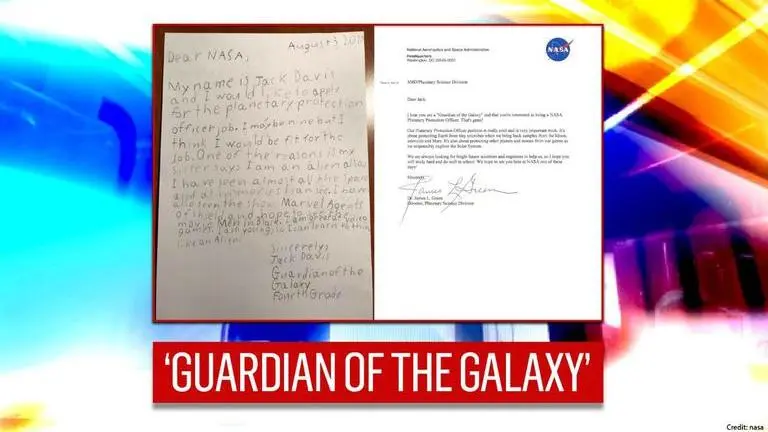 August 3, 20
Dear NASA,
My name is Jack Davis
and I would like to apply
for the planetary protection
officer job. I may be nine but I
think I would be fit for the
job. One of the reasons is my
sister says I am an alien also
I have seen almost all the space
and alien movies I can see. I have
also seen the show Marvel Agents
of Shield and hope to see the
movie Men in Black. I am great at video
games. I am young, so I can learn to think
like an Alien.
Sincerely,
Jack Davis
Guardian of the
Galaxy
Fourth Grade
National Aeronautics and Space Administration
Headquarters
Washington, DC 20546-0001
NASA
SMD/Planetary Science Division
Dear Jack,
I hear you are a "Guardian of the Galaxy" and that you're interested in being a NASA
Planetary Protection Officer. That's great!
Our Planetary Protection Officer position is really cool and is very important work. It's
about protecting Earth from tiny microbes when we bring back samples from the Moon,
asteroids and Mars. It's also about protecting other planets and moons from our germs as
we responsibly explore the Solar System.
We are always looking for bright future scientists and engineers to help us, so I hope you
will study hard and do well in school. We hope to see you here at NASA one of these
days!
Sincerely,
James L Green
Dr. James L. Green
Director, Planetary Science Division
'GUARDIAN OF THE GALAXY'
Credit: nasa